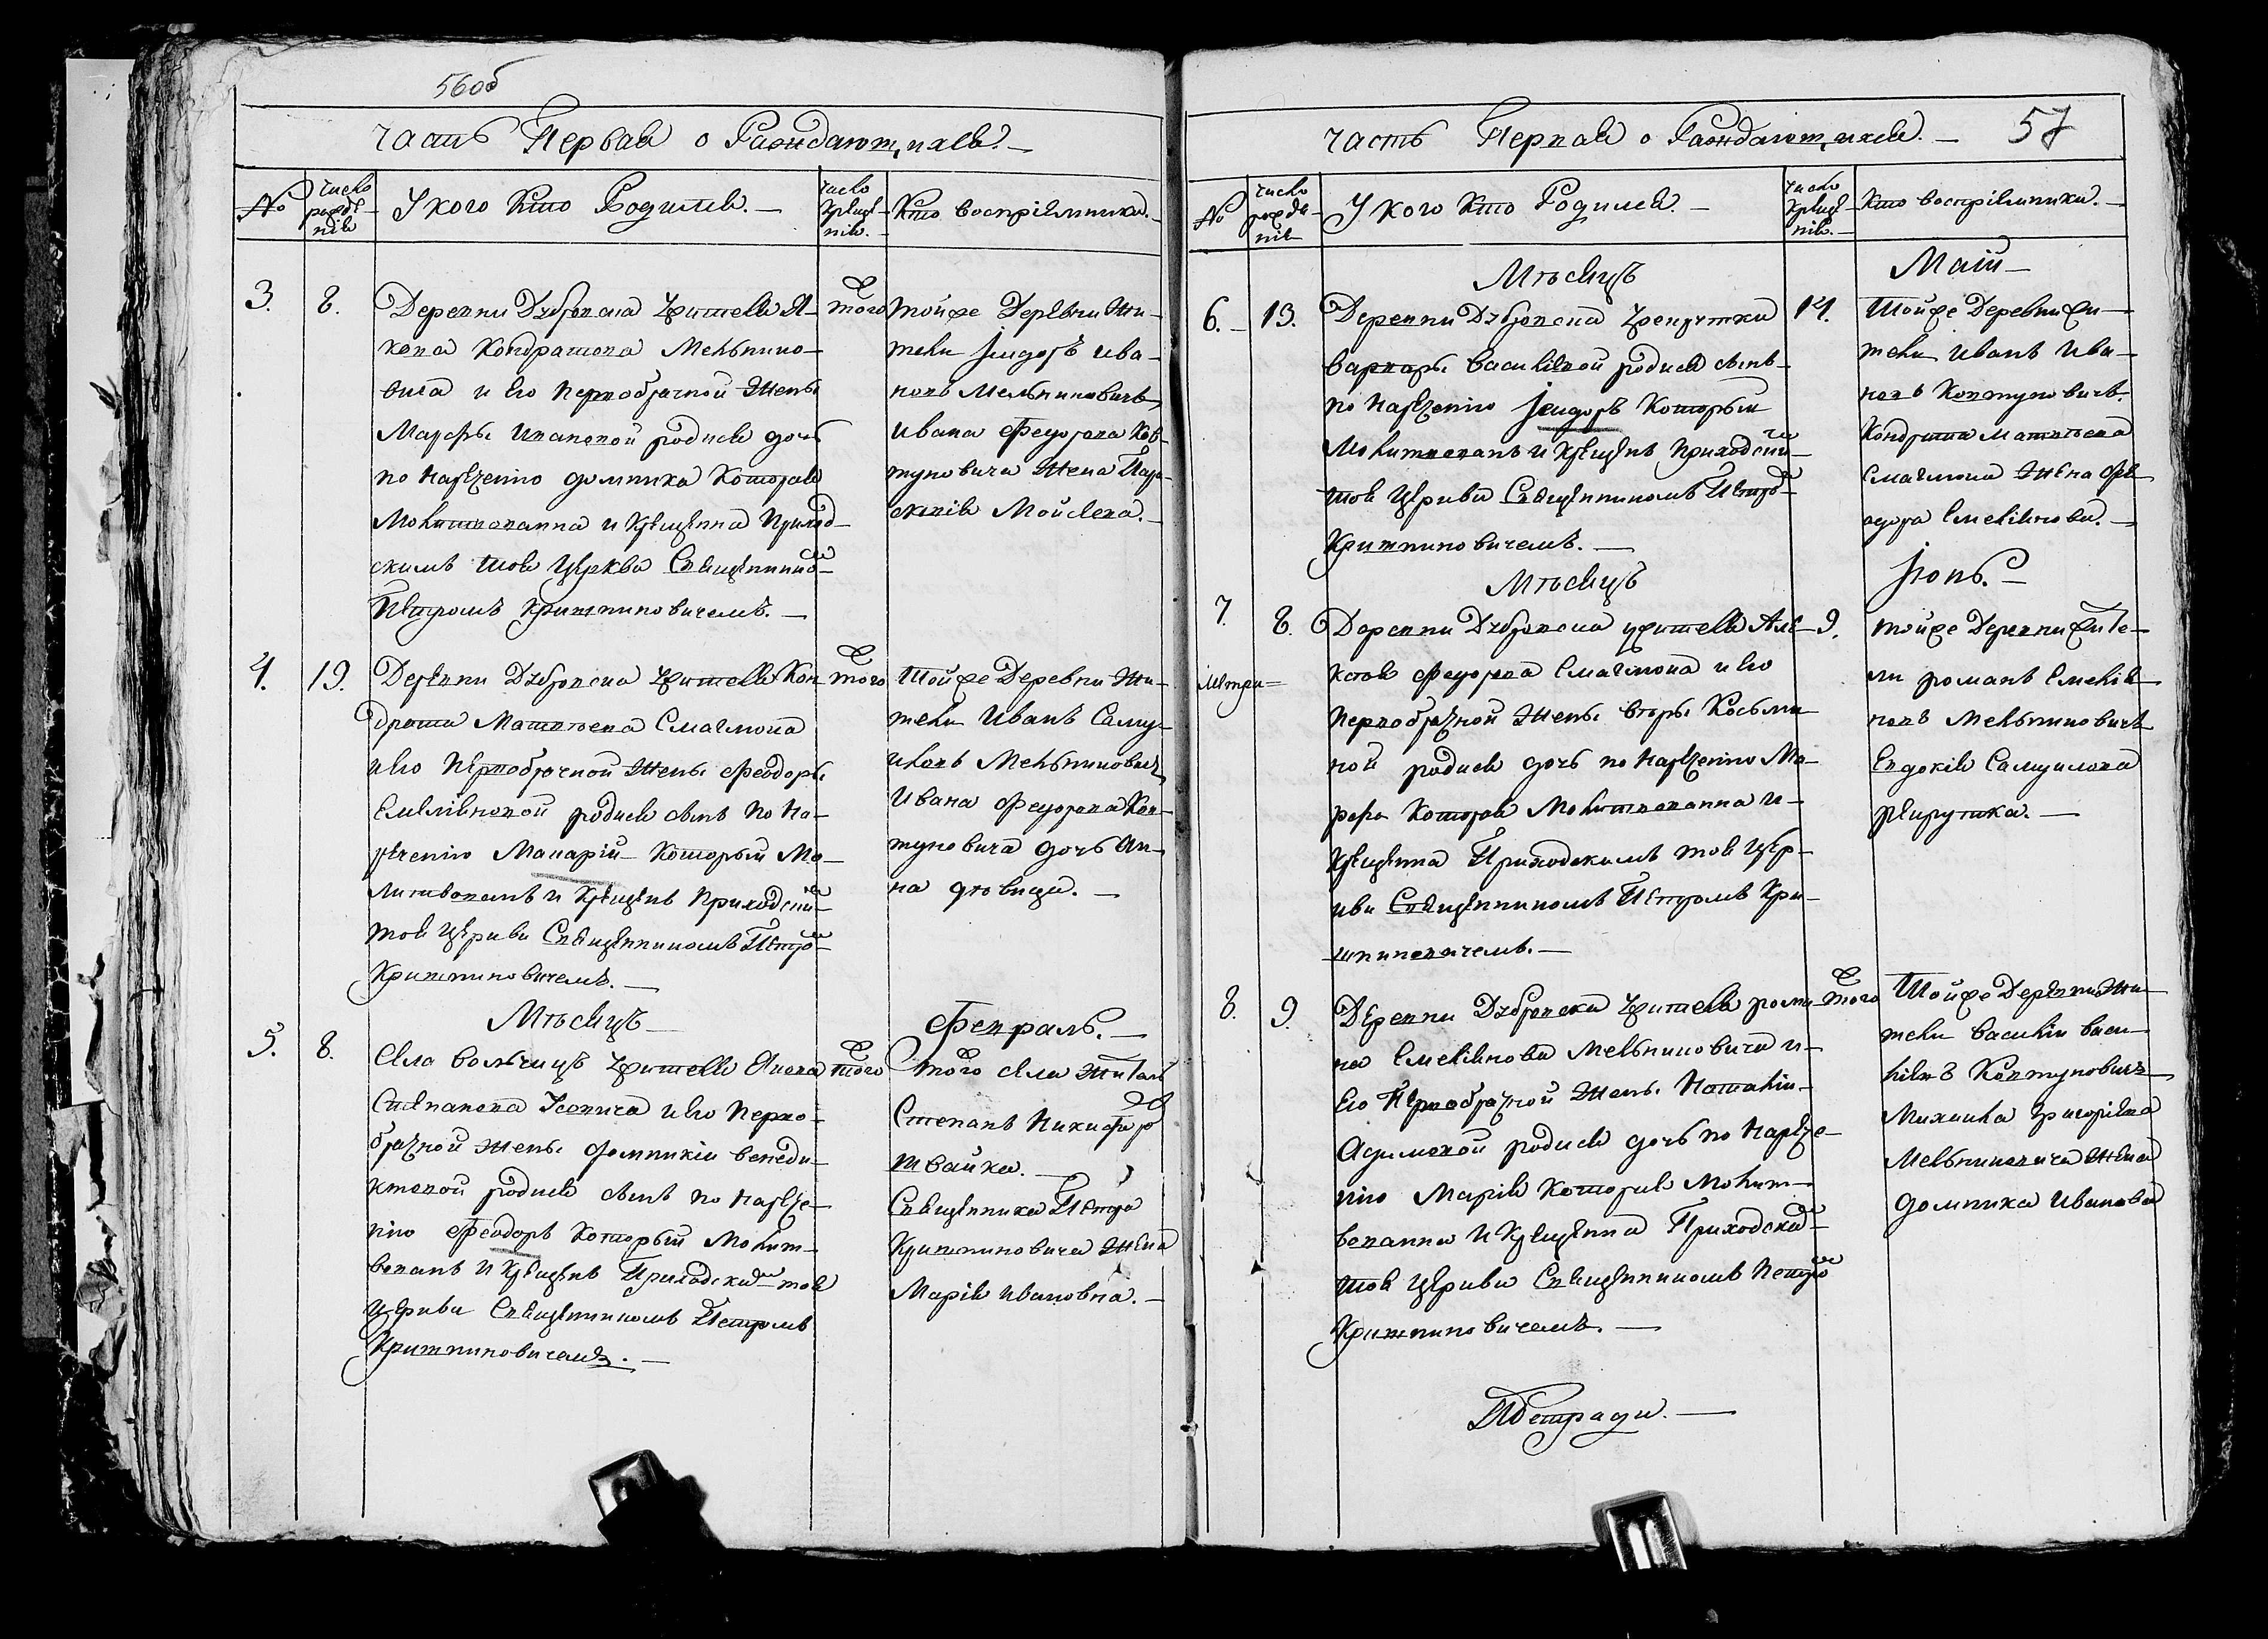 56об
Часть Первая о Раждающихся. —
№
число рожденія
У кого Кто Родился. —
число крещенія. —
Кто воспріемники. —
3.
8.
того
Деревни Дубровска жителя Я-
кова Кондратова Мельнико-
вича и его Первобрачной Жены
Марфы Ивановой родися дочь
по нареченію домника Которая
Молитвованна и Крещенна Приход-
скимъ тоя Церкви Священнико
Петромъ Криштиновичемъ. —
тойже Деревни Жи-
тели Ісидоръ Ива-
новъ Мельниковичъ,
Ивана Феодорова Ков-
туновича Жена Пара-
скевія Мойсеева. —
4.
19.
того
Деревни Дубровска жителя Кон-
драта Матвѣева Смаглюка
и его Первобрачной Жены Феодоры
Емеліяновой родися сынъ по на-
реченію Макарій Который Мо-
литвованъ и Крещенъ Приходским
тоя Церкви Священникомъ Петро
Криштиновичемъ. —
Тойже Деревни Жи-
тели Иванъ Саму-
иловъ Мельниковичъ,
Ивана Феодорова Ков-
туновича дочь Ан-
на дѣвица. —
Мѣсяцъ
Февраль. —
5.
8.
того
Села Вольчицъ жителя Якова
Степанова Усовича и его Перво-
брачной жены домникіи Венеди-
ктовой родися сынъ по нарече-
нію Феодоръ Который Молит-
вованъ и Крещенъ Приходским тоя
Церкви Священникомъ Петромъ
Криштиновичемъ. —
того села Житель
Степанъ Никифоро
Швайка. —
Священника Петра
Криштиновича Жена
Марія Ивановна. —
57
Часть Первая о Раждающихся. —
№
число рожденія
У кого Кто Родился. —
число крещенія. —
Кто воспріемники. —
Мѣсяцъ
Май —
6. —
13.
14.
Деревни Дубровска рекрутки
Варвары Василіевой родися сынъ
по нареченію Ісидоръ Который
Молитвованъ и Крещенъ Приходским
тоя Церкви Священникомъ Петро
Криштиновичемъ. —
Тойже Деревни жи-
тели Иванъ Ива-
новъ Ковтуновичъ.
Кондрата Матвѣева
Смаглюка Жена Фе-
одора Емеліянова. —
Мѣсяцъ
Іюнь. —
7.
8.
9.
Метри=
Деревни Дубровска жителя Але-
ксѣя Феодорова Смаглюка и его
Первобрачной Жены Вѣры Косьми-
ной родися дочь по нареченію Ма-
рфа Которая Молитвованна и
Крещенна Приходскимъ тоя Цер-
кви Священникомъ Петромъ Кри-
штиновичемъ. —
тойже Деревни жите-
ли романъ Емелія-
новъ Мельниковичъ
Евдокія Самуилова
рекрутка. —
8.
9.
того
Деревни Дубровска жителя рома-
на Емеліянова Мельниковича и
Его Первобрачной Жены Наталіи
Адамовой родися дочь по нарече-
нію Марія Которая Молит-
вованна и Крещенна Приходским
тоя Церкви Священникомъ Петро
Криштиновичемъ. —
Тойже Деревни Жи-
тели Василій Васи-
ліевъ Ковтуновичъ
Михаила Григоріева
Мельниковича Жена
домника Иванова
Тетради. —